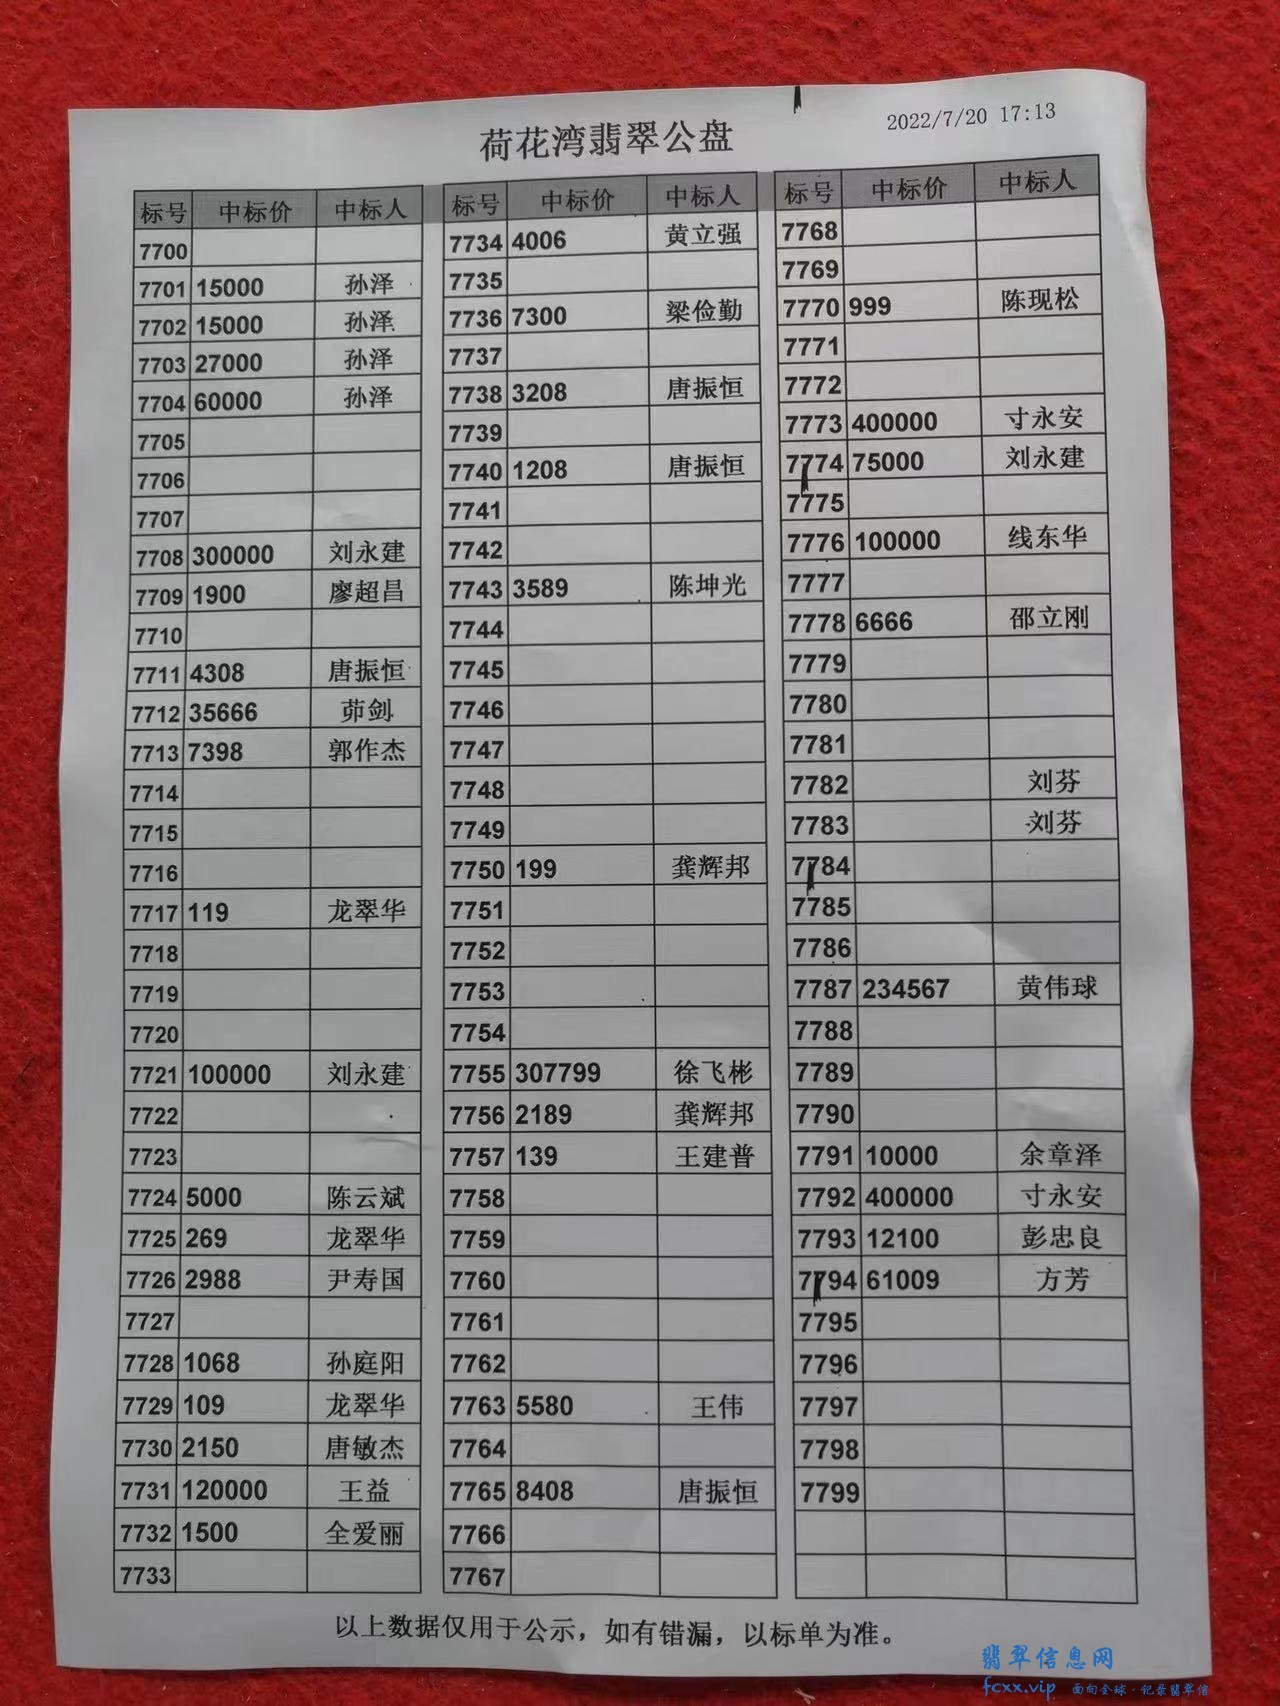 荷花湾翡翠公盘
2022/7/20 17:13
标号 中标价 中标人
7700
7701 15000 孙泽
7702 15000 孙泽
7703 27000 孙泽
7704 60000 孙泽
7705
7706
7707
7708 300000 刘永建
7709 1900 廖超昌
7710
7711 4308 唐振恒
7712 35666 茆剑
7713 7398 郭作杰
7714
7715
7716
7717 119 龙翠华
7718
7719
7720
7721 100000 刘永建
7722
7723
7724 5000 陈云斌
7725 269 龙翠华
7726 2988 尹寿国
7727
7728 1068 孙庭阳
7729 109 龙翠华
7730 2150 唐敏杰
7731 120000 王益
7732 1500 全爱丽
7733
标号 中标价 中标人
7734 4006 黄立强
7735
7736 7300 梁俭勤
7737
7738 3208 唐振恒
7739
7740 1208 唐振恒
7741
7742
7743 3589 陈坤光
7744
7745
7746
7747
7748
7749
7750 199 龚辉邦
7751
7752
7753
7754
7755 307799 徐飞彬
7756 2189 龚辉邦
7757 139 王建普
7758
7759
7760
7761
7762
7763 5580 王伟
7764
7765 8408 唐振恒
7766
7767
标号 中标价 中标人
7768
7769
7770 999 陈现松
7771
7772
7773 400000 寸永安
7774 75000 刘永建
7775
7776 100000 线东华
7777
7778 6666 邵立刚
7779
7780
7781
7782 刘芬
7783 刘芬
7784
7785
7786
7787 234567 黄伟球
7788
7789
7790
7791 10000 余章泽
7792 400000 寸永安
7793 12100 彭忠良
7794 61009 方芳
7795
7796
7797
7798
7799
以上数据仅用于公示，如有错漏，以标单为准。
翡翠信息网
fcxx.vip 面向全球·记录翡翠信